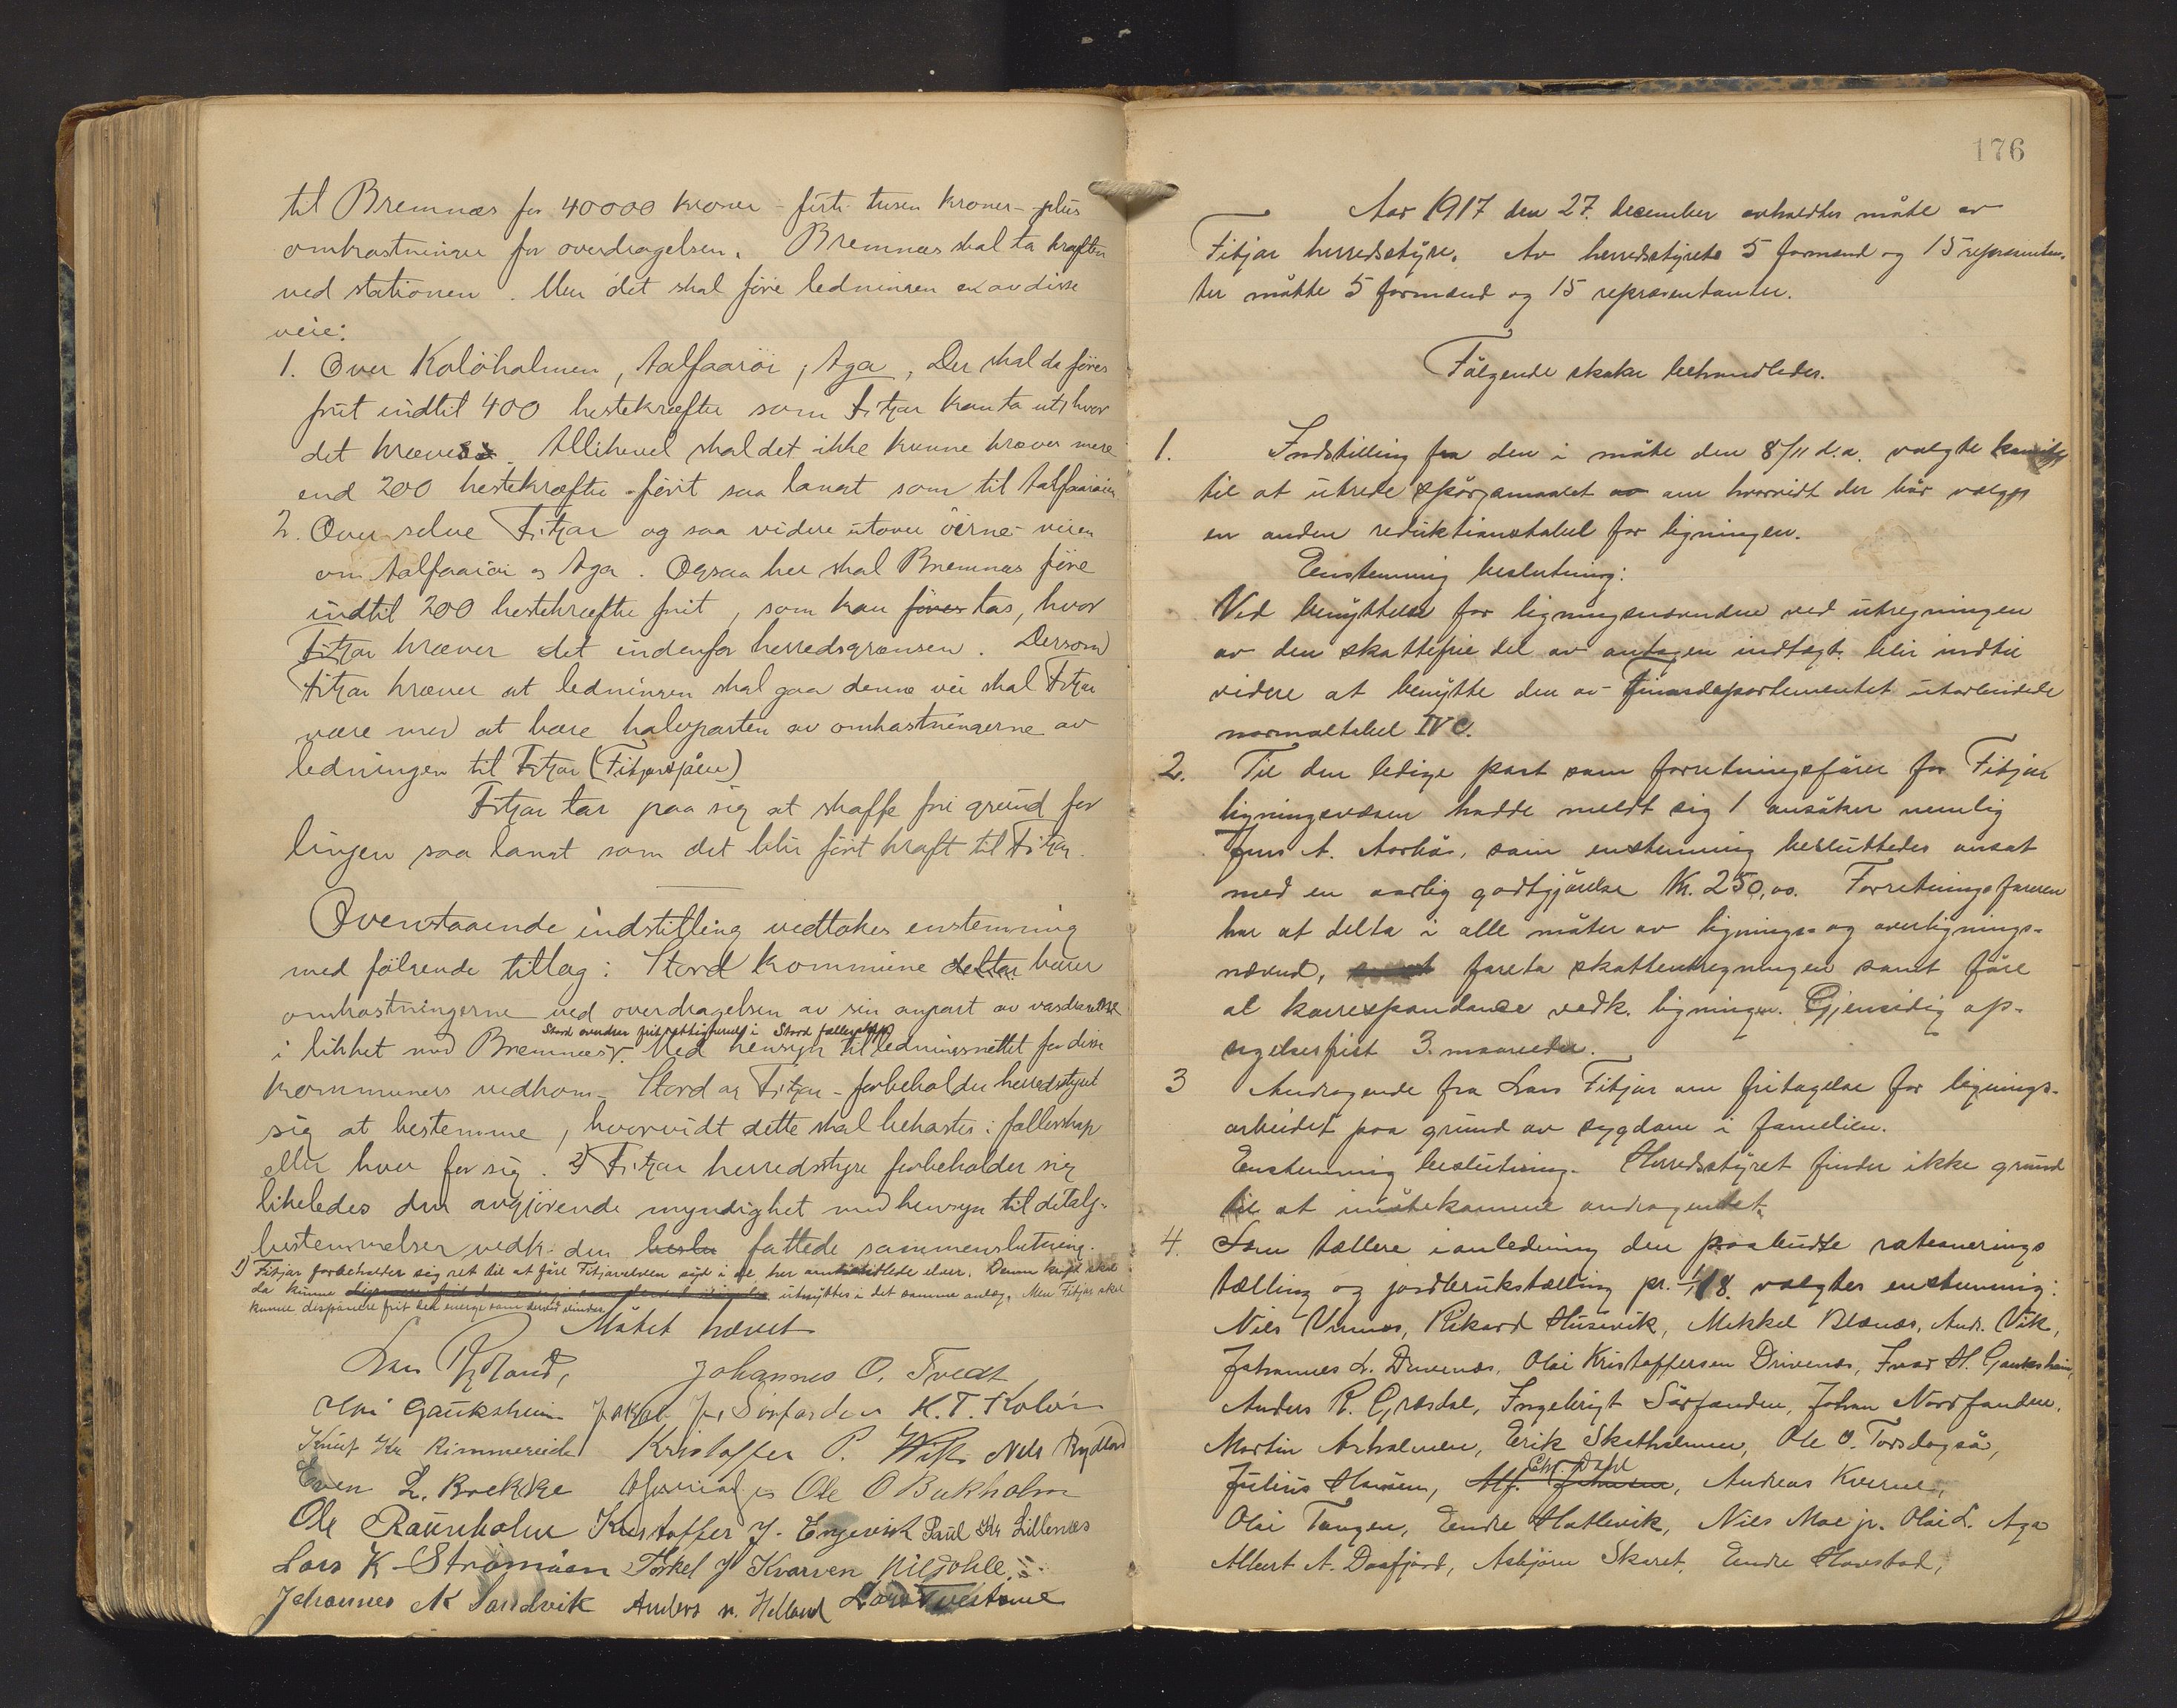 til Bremnæs for 40000 kroner - firti tusen kroner - plus
omkostninger for overdragelsen. Bremnæs skal ta kraften
ved stationen. Men det skal före ledningen en av disse
veie:
1. Over Kolöholmen, Aalfaaröi, Aga, Der skal da föres
frit indtil 400 hestekræfter som Fitjar kan ta ut, hvor
det kræves. Allikevel skal det ikke kunne kræves mere
end 200 hestekræfter fört saa langt som til Aalfaaröien
2. Over selve Fitjar og saa videre utover öerne - veien
om Aalfaaröi og Aga. Ogsaa her skal Bremnæs före
indtil 200 hestekræfter frit, som kan föres tas, hvor
Fitjar kræver det indenfor herredsgrænsen. Dersom
Fitjar kræver at ledningen skal gaa denne vei skal Fitjar
være med at bære halvparten av omkostningerne av
ledningen til Fitjar (Fitjarsjöen)
Fitjar tar paa sig at skaffe fri grund for
linjen saa langt som det blir fört kraft til Fitjar.
Ovenstaaende indstilling vedtokes enstemmig
med fölgende tillæg: Stord kommune deltar bærer
omkostningerne ved overdragelsen av sin anpart av vasdraget
i likhet med Bremnæs. Med hensyn til ledningsnettet for disse
Stord overdrar frit rettigheter i Stord fællesskap
kommuners vedkom. Stord og Fitjar - forbeholder herredsstyret
sig at bestemme, hvorvidt dette skal bekostes i fællesskap
eller hver for sig. 2) Fitjar herredsstyre forbeholder sig
likeledes den avgjörende myndighet med hensyn til detalj-
bestemmelser vedk. den beslu fattede sammenslutning.
1) Fitjar forbeholder sig ret til at före Fitjarelven syd i de her omhandlede elver. Denne kraft skal
da kunne utnyttes i det samme anlæg. Men Fitjar skal
kunne disponere frit den energi som derved vindes.
Mötet hævet
Lars Rydland, Johannes O. Tvedt
Olai Gauksheim Jakob J. Sörfonden K. T. Kolöen
Knut Kr Rimmereide Kristoffer P. Wik Nels Rydland
Even L. Brekke Ole O Bukholm
Ole Raunholm Kristoffer J. Engevik Paul Kr Lillenes
Lars K Strömöen Torkel J Kvarven
Johannes K Sandvik Anders N. Helland Lars Tvestene
176
Aar 1917 den 27. december avholdtes möte av
Fitjar herredsstyre. Av herredsstyrets 5 formænd og 15 repræsentan-
ter mötte 5 formænd og 15 repræsentanter.
Fölgende saker behandledes.
1. Indstilling fra den i möte den 8/11 d.a. valgte komite
til at utrede spörgsmaalet av om hvorvidt der bör vælges
en anden reduktionstabel for ligningen.
Enstemmig beslutning:
Ved benyttelse for ligningsnævndene ved utregningen
av den skattefrie del av antagen indtægt blir indtil
videre at benytte den av Finansdepartementet utarbeidede
normaltabel IV C.
2. Til den ledige post som forretningsförer for Fitjar
ligningsvæsen hadde meldt sig 1 ansöker nemlig
Jens A. Aarbö, som enstemmig besluttedes ansat
med en aarlig godtgjörelse Kr. 250,00. Forretningsföreren
har at delta i alle möter av lignings- og overlignings-
nævnd, foreta skatteutregningen samt före
al korrespondance vedk. ligningen. Gjensidig op-
sigelsesfrist 3 maaneder.
3 Andragende fra Lars Fitjar om fritagelse for lignings-
arbeidet paa grund av sygdom i familien.
Enstemmig beslutning. Herredsstyret finder ikke grund
til at imötekomme andragendet.
4. Som tællere i anledning den paabudte rationerings
tælling og jordbrukstælling pr. 1/1 18. valgtes enstemmig:
Nils Vernæs, Rikard Husevik, Mekkel Blænes, Andr. Vik,
Johannes L. Drivenes, Olai Kristoffersen Drivenes, Ivar H. Gauksheim,
Anders R. Græsdal, Ingebrigt Sörfonden, Johan Nordfonden,
Martin Arholmen, Erik Skatholmen, Ole O. Torsdagsö,
Chr. Dahl
Julius Hansen, Alf. Johnsen, Andreas Kverne,
Olai Tangen, Endre Hatlevik, Nils Moe jr. Olai L. Aga
Albert A. Daafjord, Asbjörn Skaret, Endre Havstad,